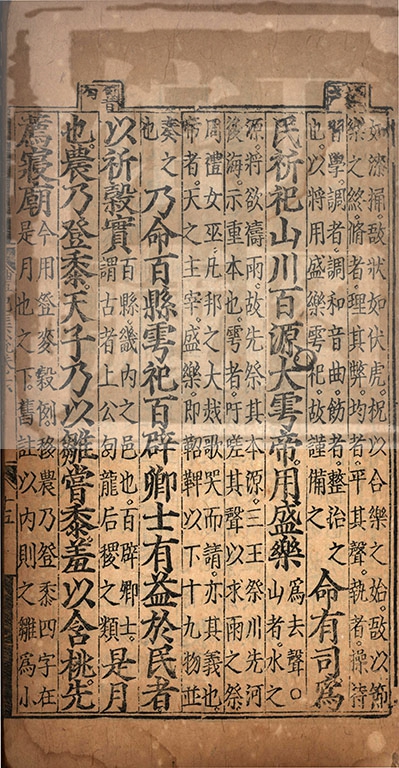 如漆桶。敔狀如伏虎。柷以合樂之始。敔以節
樂之終。脩者。理其弊。均者。平其聲。執者。操持
習學。調者。調和音曲。飭者。整治之
也。以將用盛樂雩祀。故謹備之
命有司爲
民祈祀山川百源。大雩帝。用盛樂
爲去聲○
山者。水之
源。將欲禱雨。故先祭其本源。三王祭川。先河
後海。示重本也。雩者。吁嗟其聲以求雨之祭
周禮女巫。凡邦之大烖。歌哭而請。亦其義也
帝者。天之主宰。盛樂。即鞀鞞以下十九物並
奏之
也
乃命百縣雩祀百辟卿士有益於民者
以祈穀實
百縣。畿內之邑也。百辟卿士。
謂古者上公句龍后稷之類
是月
也。農乃登黍。天子乃以雛嘗黍。羞以含桃。先
薦寢廟
今用登麥穀例。移農乃登黍四字在
是月也之下。舊註以內則之雛爲小